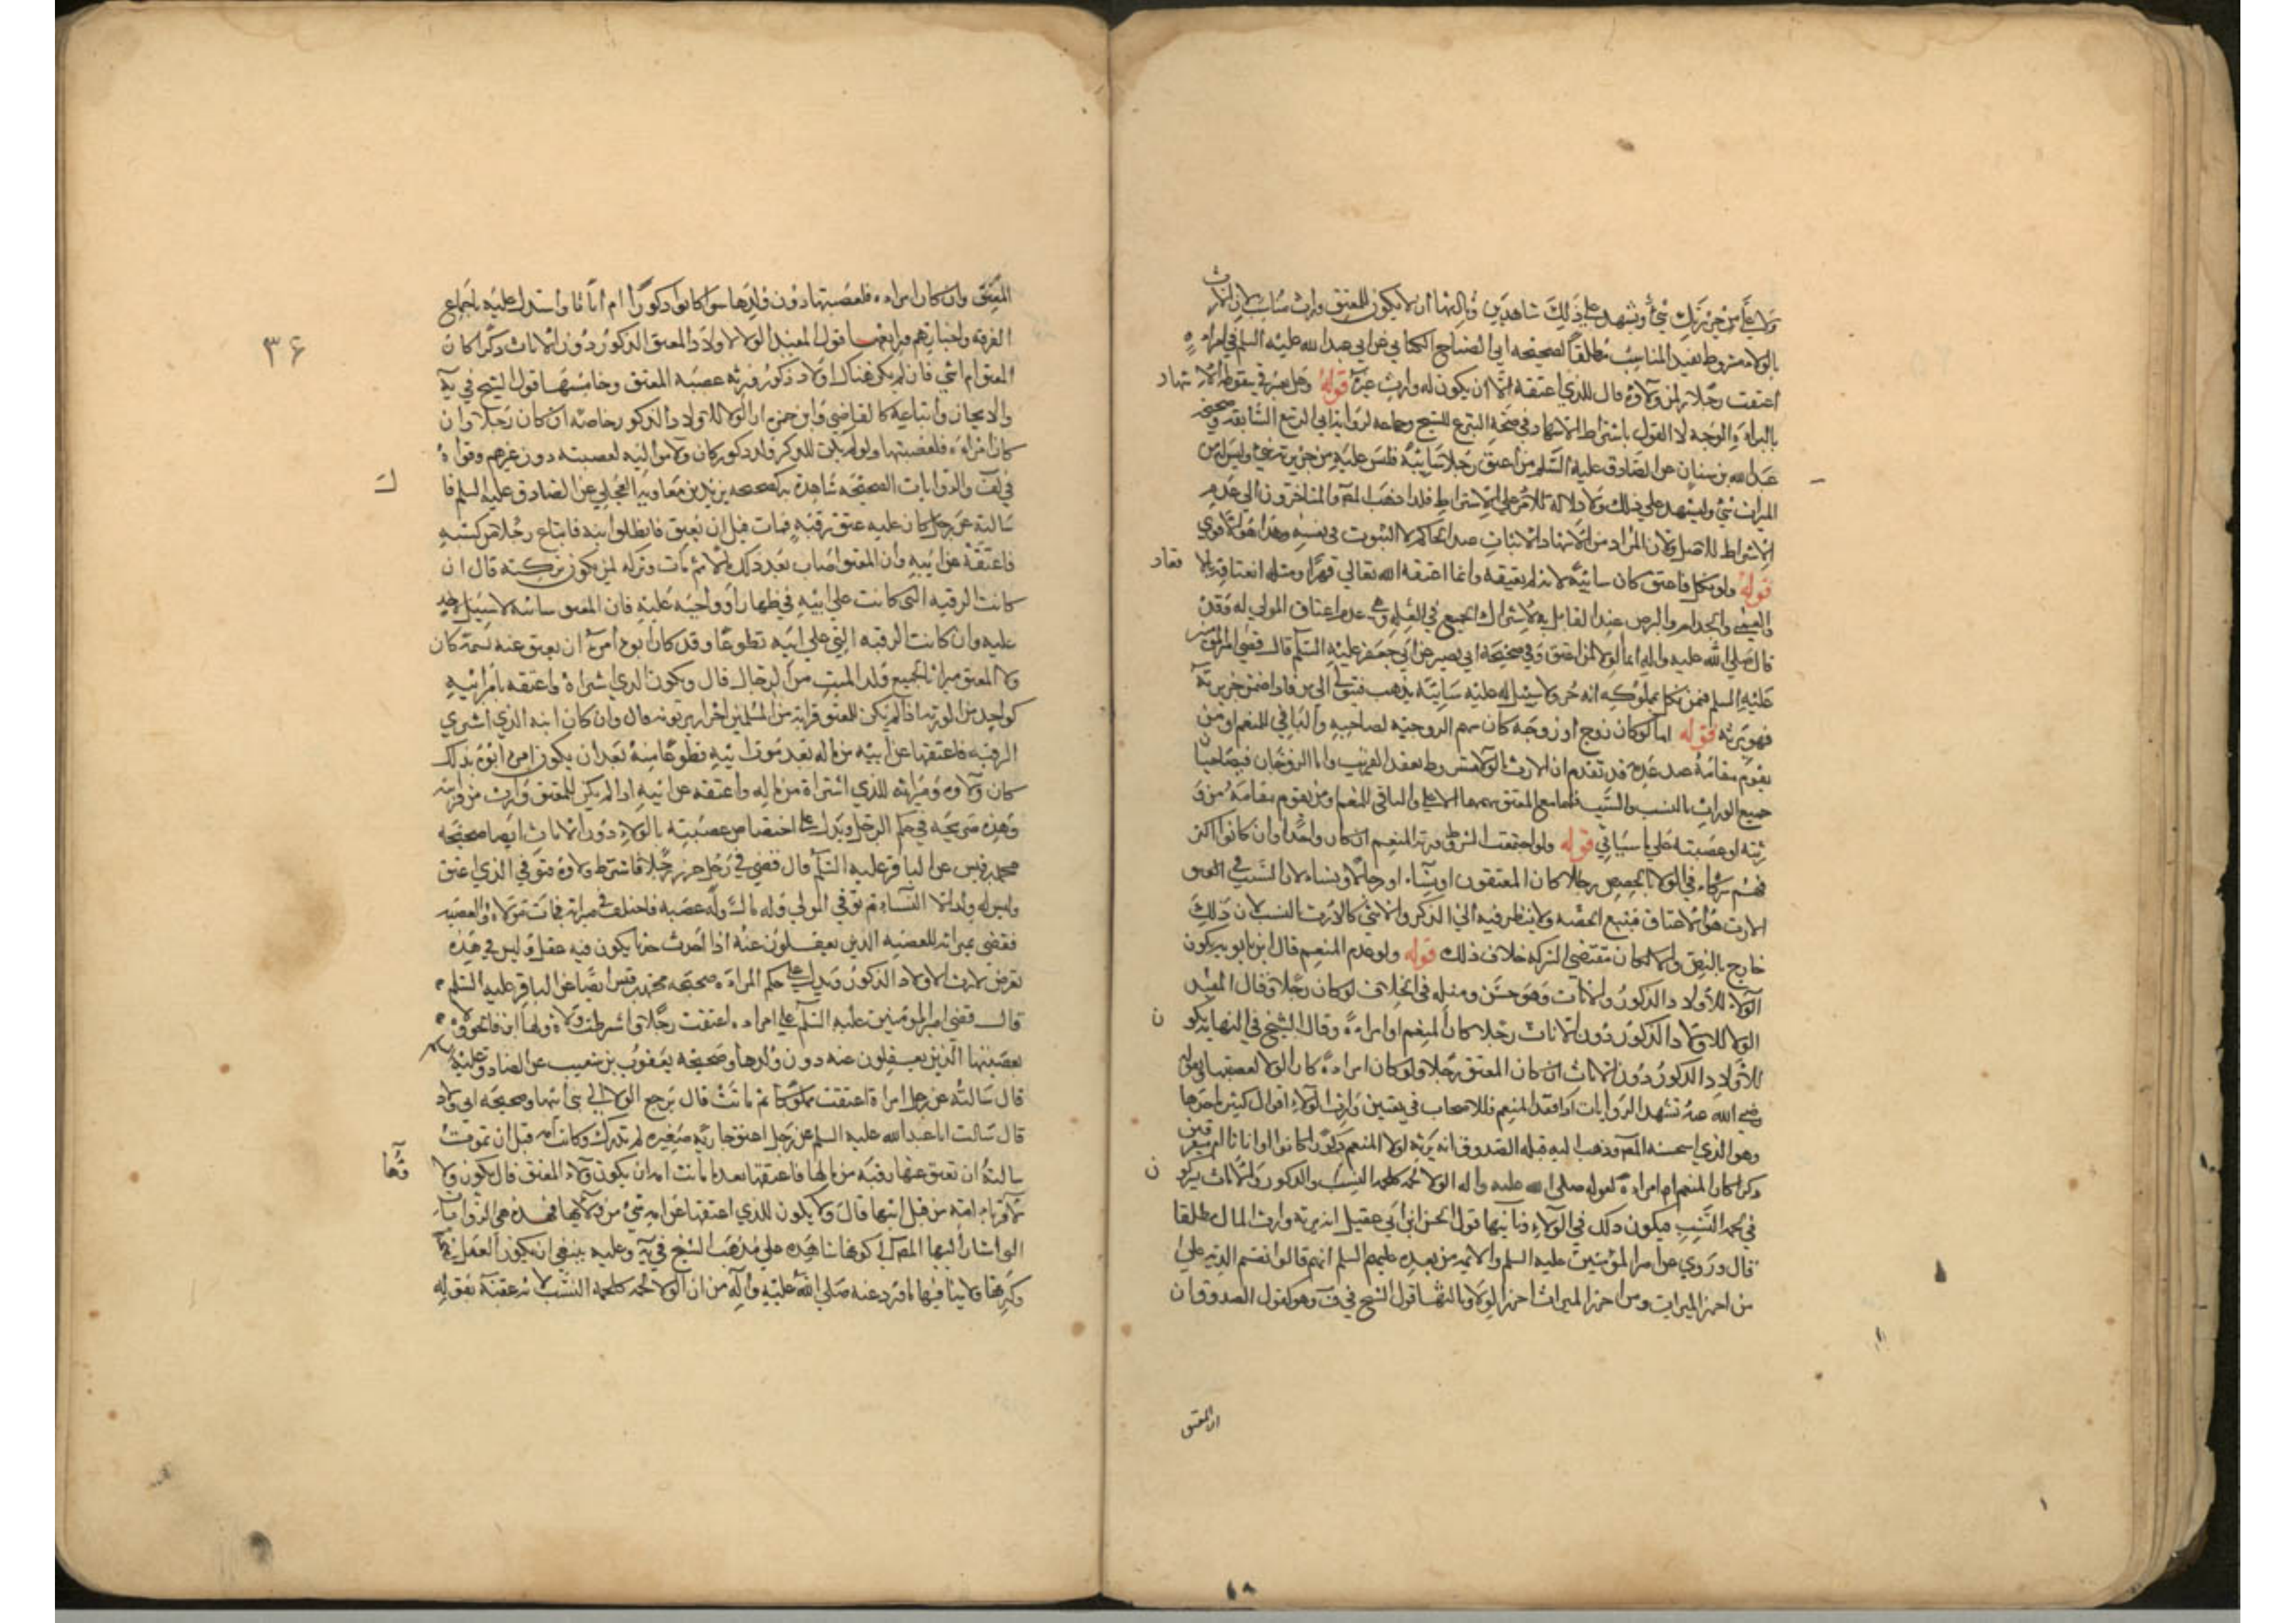 ولا علي من جريرتك شيء ويشهد علي ذلك شاهدين وثالثها ان لا يكون للمعتق وارث مناسب لان الارث
بالولاء مشروط بفقد المناسب مطلقا لصحيحه ابي الصباح الكناني عن ابي عبدالله عليه السلم في امراه
اعتقت رجلا لمن ولاؤه قال للذي اعتقه الا ان يكون له وارث غيره قوله وهل يشترط في سقوطه الاشهاد
بالبراءة الوجه لا القول باشتراط الاشهاد في صحة التبري للشيخ وجماعه لرواية ابي الربيع السابقة وصحيحه
عبدالله بن سنان عن الصادق عليه السلم من اعتق رجلا سائبة فليس عليه من جريرته شيء وليس له من
الميراث شيء وليشهد علي ذلك ولا دلاله للامر علي الاشتراط فلذا ذهب المص والمتاخرون الي عدم
الاشتراط للاصل ولان المراد من الاشهاد الاثبات عند الحاكم لا الثبوت في نفسه وهذا هو الاقوي
قوله ولو نكل فاعتق كان سائبة لانه لم يعتقه وانما اعتقه الله تعالي قهرا ومثله انعتاقه بالاقعاد
والعمي والجذام والبرص عند القائل به لاشتراك الجميع في العله وهي عدم اعتاق المولي له وقد
قال صلي الله عليه واله انما الولاء لمن اعتق وفي صحيحة ابي بصير عن ابي جعفر عليه السلم قال قضي امير المومنين
عليه السلم فيمن نكل بمملوكه انه حر ولا سبيل له عليه سائبة يذهب فيتولي الي من شاء فاذا ضمن جريرته
فهو يرثه قوله اما لو كان زوج او زوجة كان سهم الزوجيه لصاحبه والباقي للمنعم او من
يقوم مقامه عند عدمه قد تقدم ان الارث بالولاء مشروط بفقد القريب واما الزوجان فيصاحبان
جميع الوراث بالنسب والسبب فلهما مع المعتق سهمهما الاعلي والباقي للمنعم ومن يقوم مقامه من ور
ثته او عصبته علي ما سياتي قوله ولو اجتمعت الشروط ورثه المنعم ان كان واحدا وان كانوا اكثر
فهم شركاء في الولاء بالحصص رجالا كان المعتقون او نساء او رجالا ونساء لان السبب في
الارث هو الاعتاق فيتبع الحصه ولا ينظر فيه الي الذكر والانثي كالارث بالنسب لان ذلك
خارج بالنص والا لكان مقتضي الشركه خلاف ذلك قوله ولو عدم المنعم قال ابن بابويه يكون
الولاء للاولاد الذكور والاناث وهو حسن ومثله في الخلاف لو كان رجلا وقال المفيد
الولاء للاولاد الذكور دون الاناث رجلا كان المنعم او امراة وقال الشيخ في النهايه يكون
للاولاد الذكور دون الاناث ان كان المعتق رجلا ولو كان امراة كان الولاء لعصبتها وبقوله
رضي الله عنه تشهد الروايات اذا فقد المنعم فللاصحاب في تعيين وارث الولاء اقوال كثيره احدها
وهو الذي استحسنه المص وذهب اليه قبله الصدوق انه يرثه اولاد المنعم ذكورا كانوا او اناثا ام متفرقين
ذكرا كان المنعم ام امراة لقوله صلي الله عليه واله الولاء لحمه كلحمه النسب والذكور والاناث يشتركون
في لحمه النسب فيكون كذلك في الولاء وثانيها قول الحسن ابن ابي عقيل انه يرثه وارث المال مطلقا
قال وروي عن امير المومنين عليه السلم والائمه من بعده عليهم السلم انهم قالوا تقسم الدية علي
من احرز الميراث ومن احرز الميراث احرز الولاء وثالثها قول الشيخ في ف وهو كقول الصدوق ان
ان المعتق
٣۶
المعتق وان كان امراه فلعصبتها دون ولدها سوا كانوا ذكورا ام اناثا واستدل عليه باجماع
الفرقه واخبارهم ورابعها قول المفيد الولاء لاولاد المعتق الذكور دون الاناث ذكرا كان
المعتق ام انثي فان لم يكن هناك اولاد ذكور ورثه عصبه المعتق وخامسها قول الشيخ في يه
والايجاز واتباعه كالقاضي وابن حمزه ان الولاء للاولاد الذكور خاصه ان كان رجلا وان
كان امراه فلعصبتها ولو لم يكن للذكر ولد ذكور كان ولاء مواليه لعصبته دون غيرهم وقواه
في لف والروايات الصحيحه شاهدة به كصحيحه بريد بن معاويه العجلي عن الصادق عليه السلم قال
سالته عن رجل كان عليه عتق رقبة فمات قبل ان يعتق فانطلق ابنه فابتاع رجلا من كسبه
فاعتقه عن ابيه وان المعتق اصاب بعد ذلك مالا ثم مات وتركه لمن يكون تركته قال ان
كانت الرقبه التي كانت علي ابيه في ظهار او واجبه عليه فان المعتق سائبه لا سبيل لاحد
عليه وان كانت الرقبه التي علي ابيه تطوعا وقد كان ابوه امره ان يعتق عنه نسمة كان
ولاء المعتق ميراثا لجميع ولد الميت من الرجال قال ويكون الذي اشتراه واعتقه بامر ابيه
كواحد من الورثه اذا لم يكن للمعتق قرابة من المسلمين احرار يرثونه قال وان كان ابنه الذي اشتري
الرقبه فاعتقها عن ابيه من ماله بعد موت ابيه تطوعا منه بعد ان يكون امره ابوه بذلك
كان ولاؤه وميراثه للذي اشتراه من ماله واعتقه عن ابيه اذا لم يكن للمعتق وارث من قرابته
وهذه صريحة في حكم الرجل ويدل علي اختصاص عصبته بالولاء دون الاناث ايضا صحيحه
محمد بن قيس عن الباقر عليه السلم قال قضي في رجل حرر رجلا فاشترط ولاؤه فتوفي الذي اعتق
وليس له ولد الا النساء ثم توفي المولي وله مال وله عصبه فاحتلف في ميراثه بنات مولاه والعصبه
فقضي بميراثه للعصبه الذين يعقلون عنه اذا احدث حدثا يكون فيه عقل وليس في هذه
تعرض لارث الاولاد الذكور ويدل علي حكم المراة صحيحه محمد بن قيس ايضا عن الباقر عليه السلم
قال قضي امير المومنين عليه السلم علي امراه اعتقت رجلا واشترطت ولاه ولها ابن فالحق ولاه
بعصبتها الذين يعقلون عنه دون ولدها وصحيحه يعقوب بن شعيب عن الصادق عليه السلم
قال سالته عن امراة اعتقت مملوكا ثم ماتت قال يرجع الولاء الي بني ابيها وصحيحه ابي ولاد
قال سالت ابا عبدالله عليه السلم عن رجل اعتق جاريه صغيره لم تدرك وكانت امه قبل ان تموت
سالته ان تعتق عنها رقبة من مالها فاعتقها بعد ما ماتت امه لمن يكون ولاء المعتق قال يكون ولاؤها
لاقرباء امه من قبل ابيها قال ولا يكون للذي اعتقها عن امه شيء من ولائها فهذه هي الروايات
التي اشار اليها المص في كونها شاهده علي مذهب الشيخ في يه وعليه ينبغي ان يكون العمل
وكثرتها ولا ينافيها ما ورد عنه صلي الله عليه وآله من ان الولاء لحمه كلحمه النسب لانه عقبه بقوله